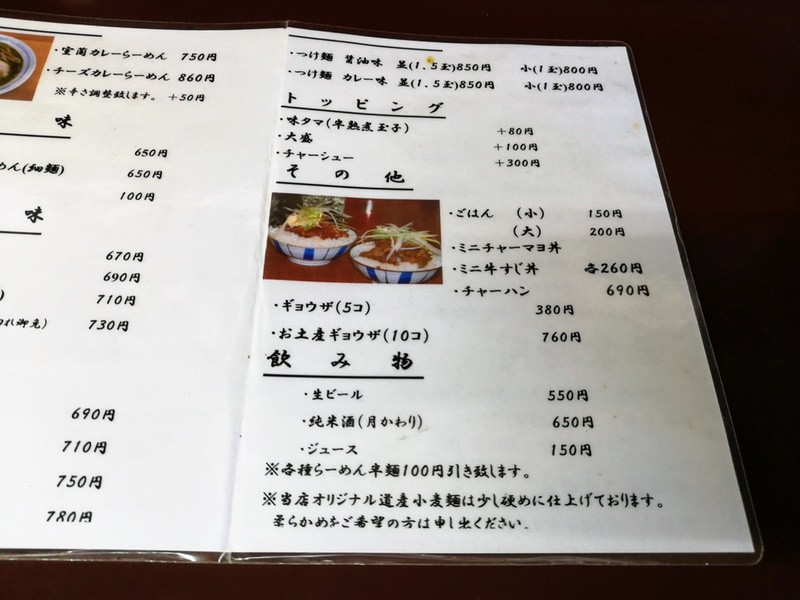 ・室蘭カレーらーめん 750円
・チーズカレーらーめん 860円
※辛さ調整致します。 +50円
味
650円
めん(細麺) 650円
100円
味
670円
690円
710円
730円
690円
710円
750円
780円
・つけ麺 醤油味 並(1.5玉)850円 小(1玉)800円
・つけ麺 カレー味 並(1.5玉)850円 小(1玉)800円
トッピング
・味タマ(半熟煮玉子) +80円
・大盛 +100円
・チャーシュー +300円
その他
・ごはん (小) 150円
(大) 200円
・ミニチャーマヨ丼
・ミニ牛すじ丼 各260円
・チャーハン 690円
・ギョウザ(5コ) 380円
・お土産ギョウザ(10コ) 760円
飲み物
・生ビール 550円
・純米酒(月かわり) 650円
・ジュース 150円
※各種らーめん半麺100円引き致します。
※当店オリジナル道産小麦麺は少し硬めに仕上げております。
柔らかめをご希望の方は申し出ください。